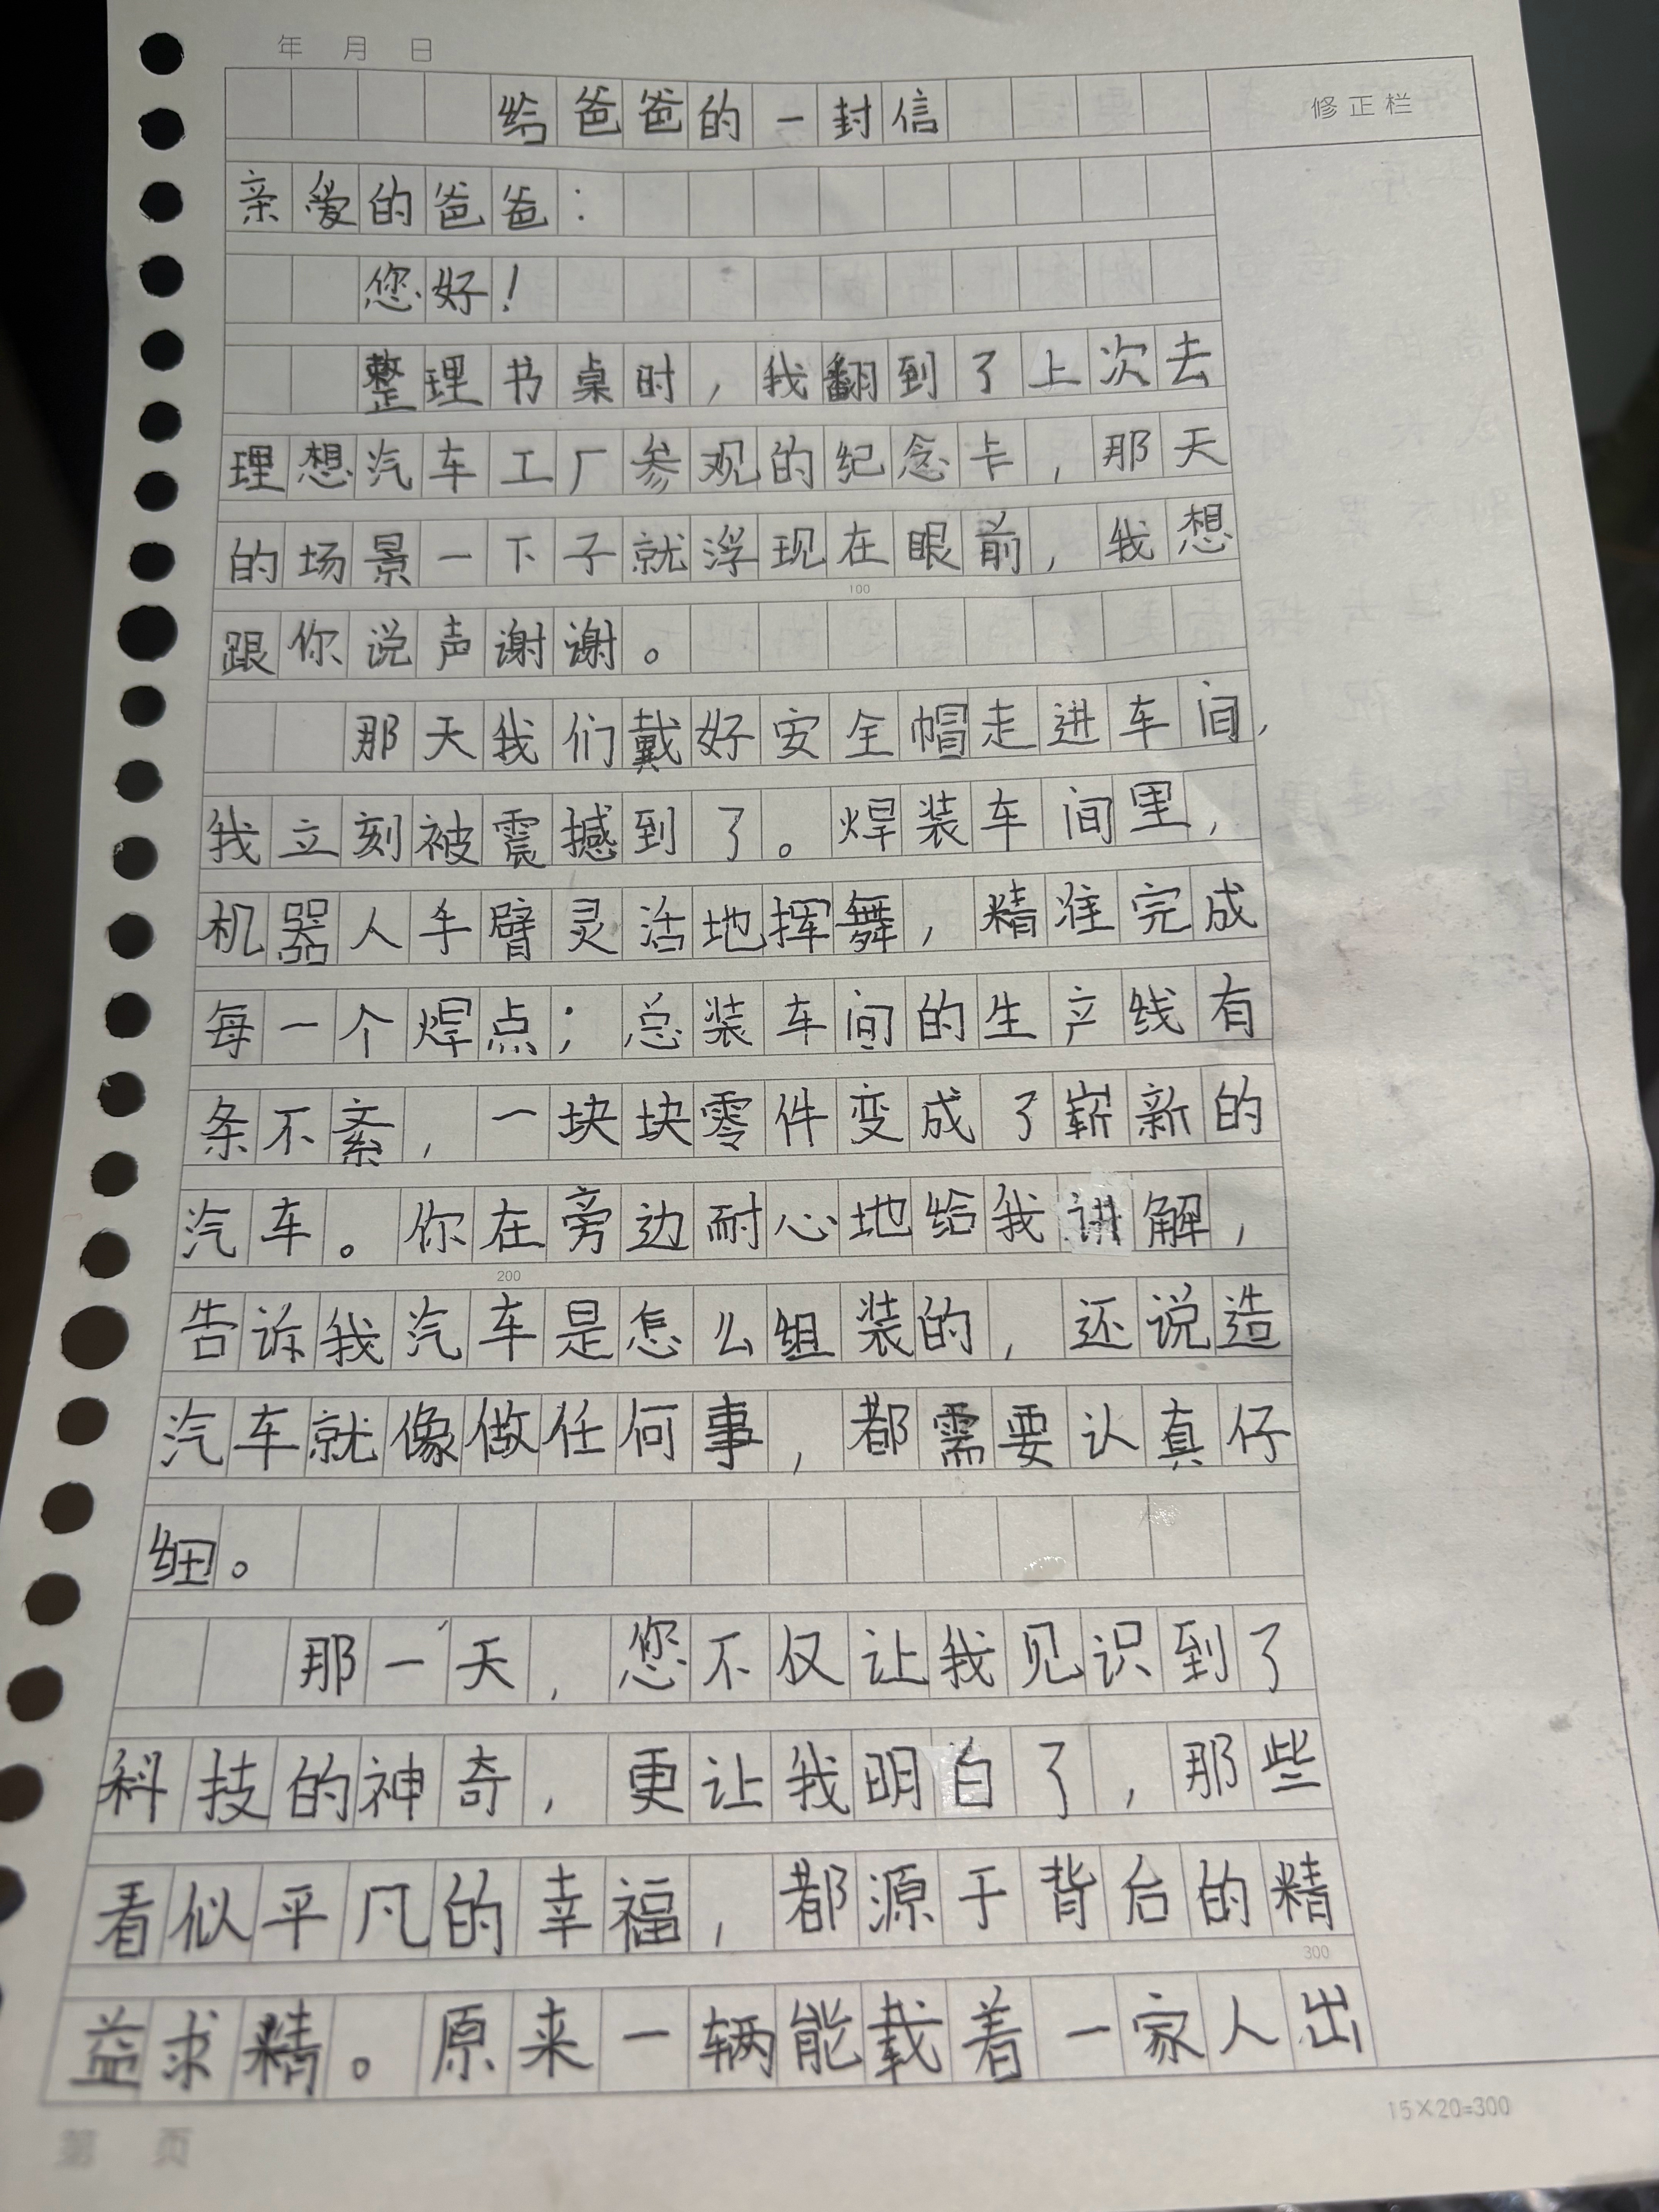 年 月 日
给爸爸的一封信
修正栏
亲爱的爸爸：
您好！
整理书桌时，我翻到了上次去
理想汽车工厂参观的纪念卡，那天
的场景一下子就浮现在眼前，我想
100
跟你说声谢谢。
那天我们戴好安全帽走进车间，
我立刻被震撼到了。焊装车间里，
机器人手臂灵活地挥舞，精准完成
每一个焊点；总装车间的生产线有
条不紊，一块块零件变成了崭新的
汽车。你在旁边耐心地给我讲解，
200
告诉我汽车是怎么组装的，还说造
汽车就像做任何事，都需要认真仔
细。
那一天，您不仅让我见识到了
科技的神奇，更让我明白了，那些
看似平凡的幸福，都源于背后的精
300
益求精。原来一辆能载着一家人出
15×20=300
第 页